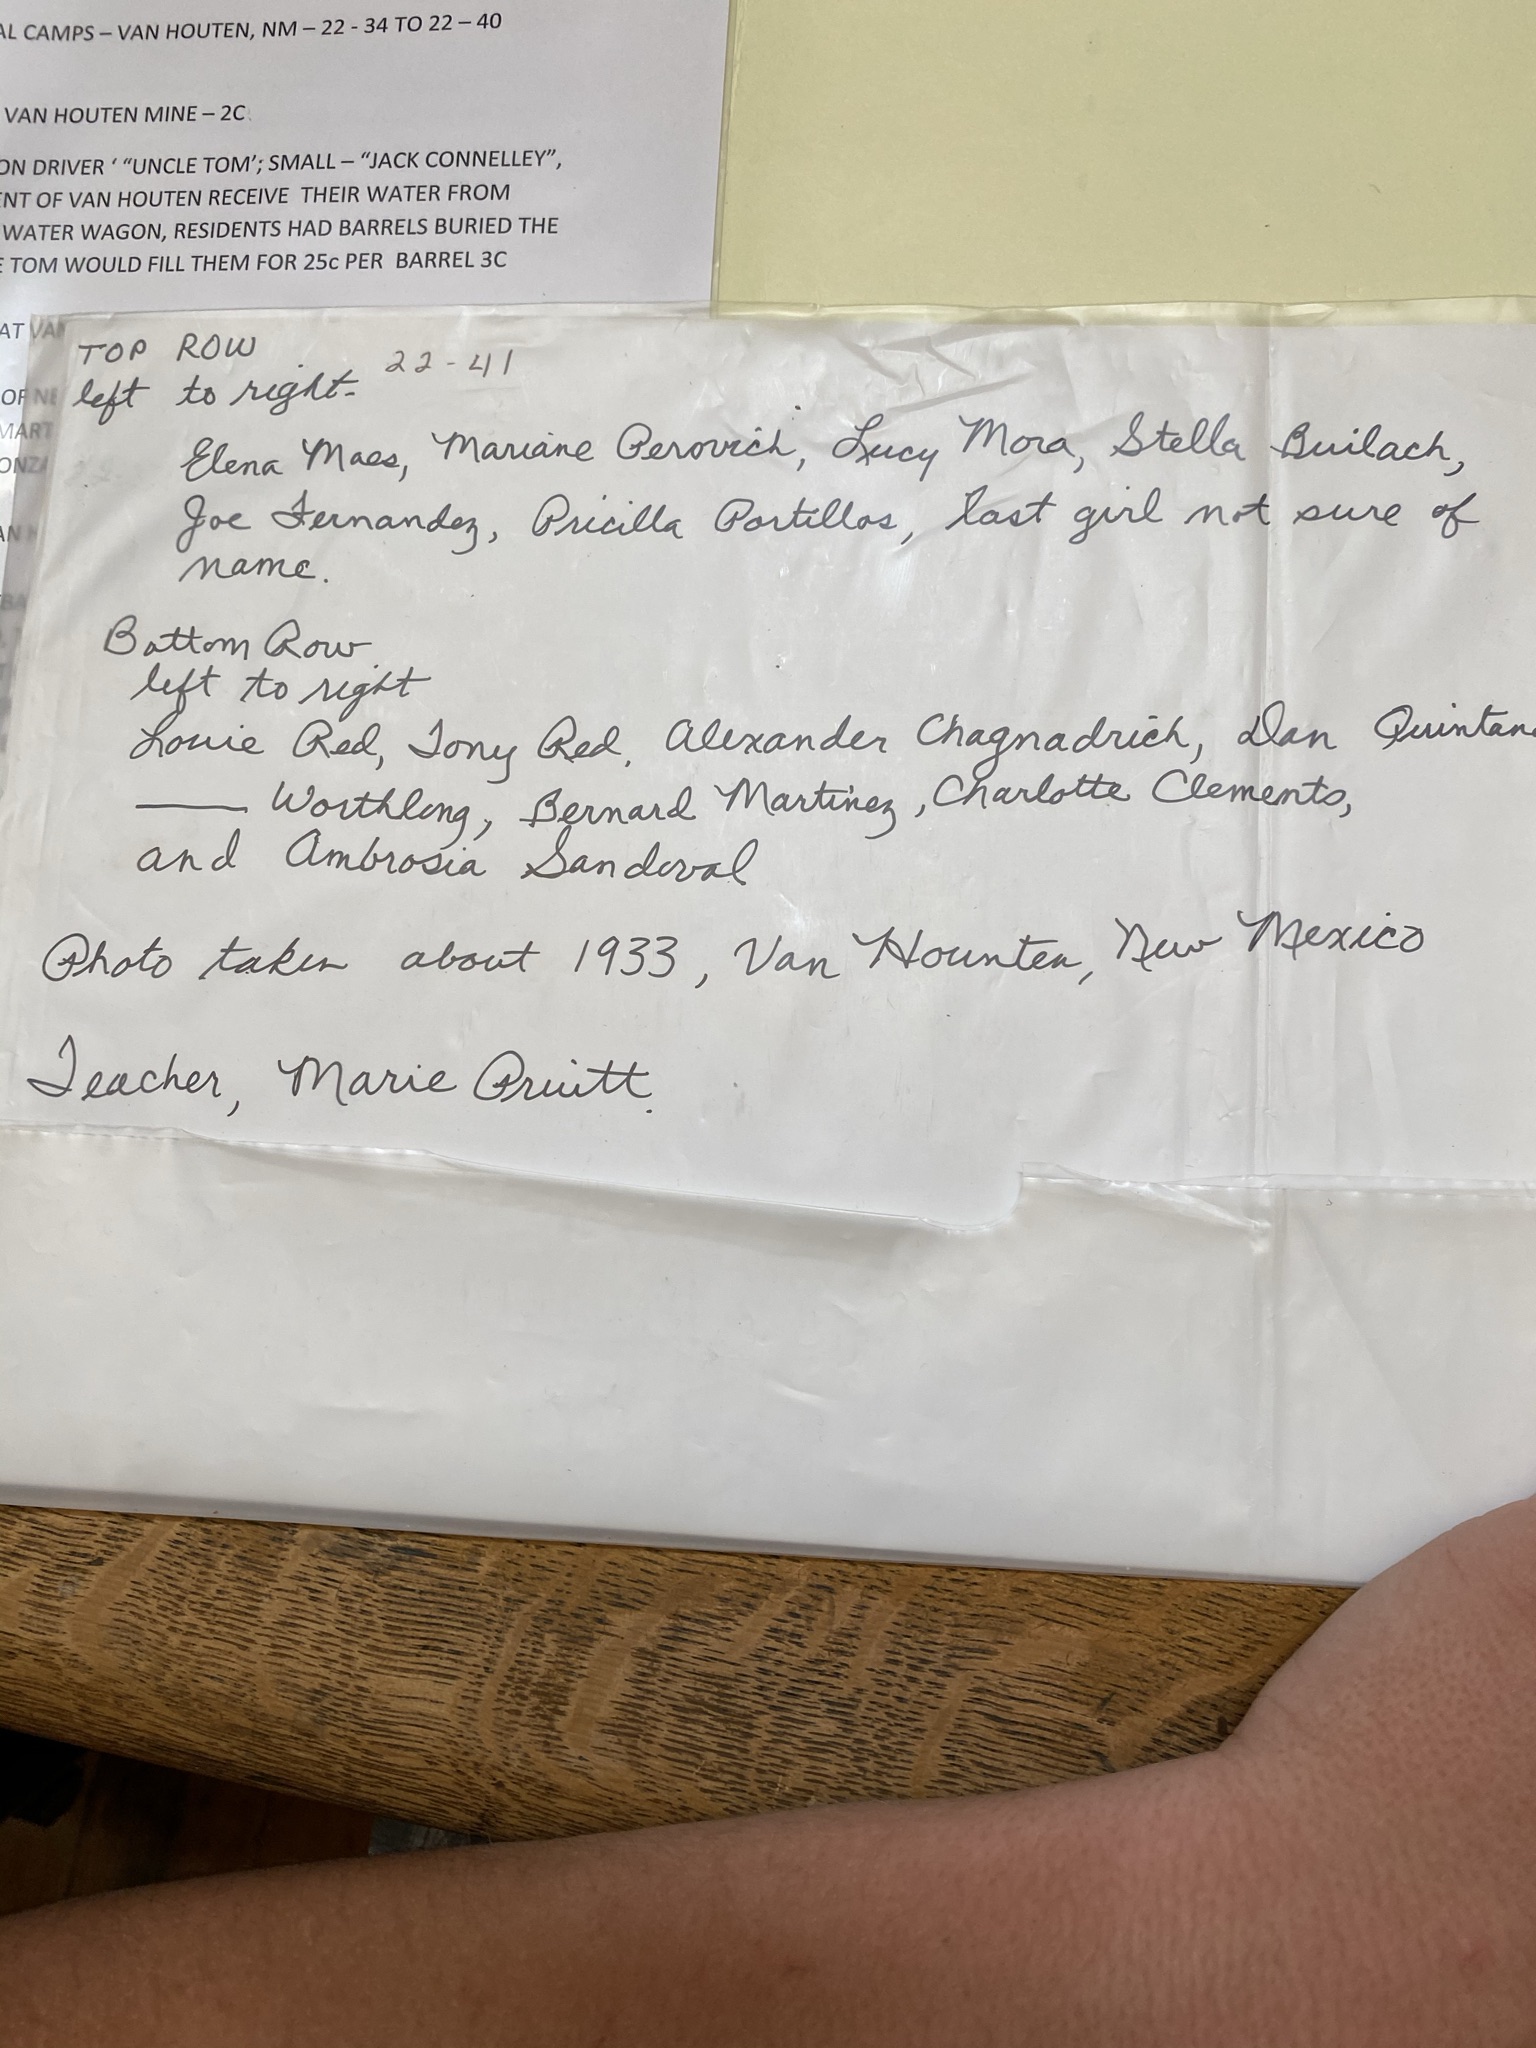 AL CAMPS – VAN HOUTEN, NM – 22 - 34 TO 22 – 40
VAN HOUTEN MINE – 2C
ON DRIVER ‘ “UNCLE TOM’; SMALL – “JACK CONNELLEY”,
ENT OF VAN HOUTEN RECEIVE THEIR WATER FROM
WATER WAGON, RESIDENTS HAD BARRELS BURIED THE
E TOM WOULD FILL THEM FOR 25c PER BARREL 3C
AT VAN
OF NE
MART
ONZA
TOP ROW
22-41
left to right-
Elena Maes, Mariane Perovich, Lucy Mora, Stella Builach,
Joe Fernandez, Pricilla Portillos, last girl not sure of
name.
Bottom Row
left to right
Louie Red, Tony Red, Alexander Chagnadrich, Dan Quintan
—— Worthlong, Bernard Martinez, Charlotte Clements,
and Ambrosia Sandoval
Photo taken about 1933, Van Hounten, New Mexico
Teacher, Marie Pruitt.